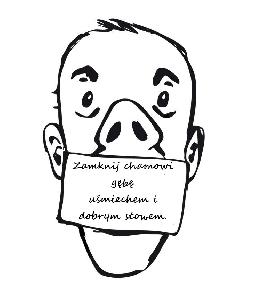 Zamknij chamowi
gębę
uśmiechem i
dobrym słowem.